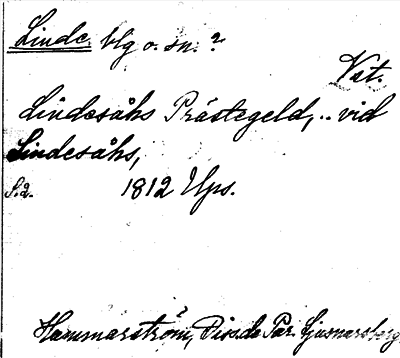 Linde blg o. sn. ?
Vst.
Lindesåhs Prästegeld, .. vid
Lindesåhs,
S.2. 1812 Ups.
Hammarström, Diss. de Par. Ljusnarsberg